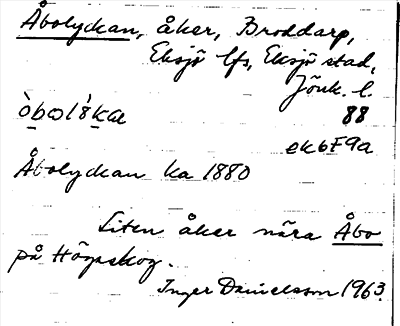 Åbolyckan, åker, Broddarp,
Eksjö lfs, Eksjö stad,
Jönk. l.
88
ek6F9a
Åbolyckan ka 1880
Liten åker nära Åbo
på Högaskog.
Inger Danielsson 1963.